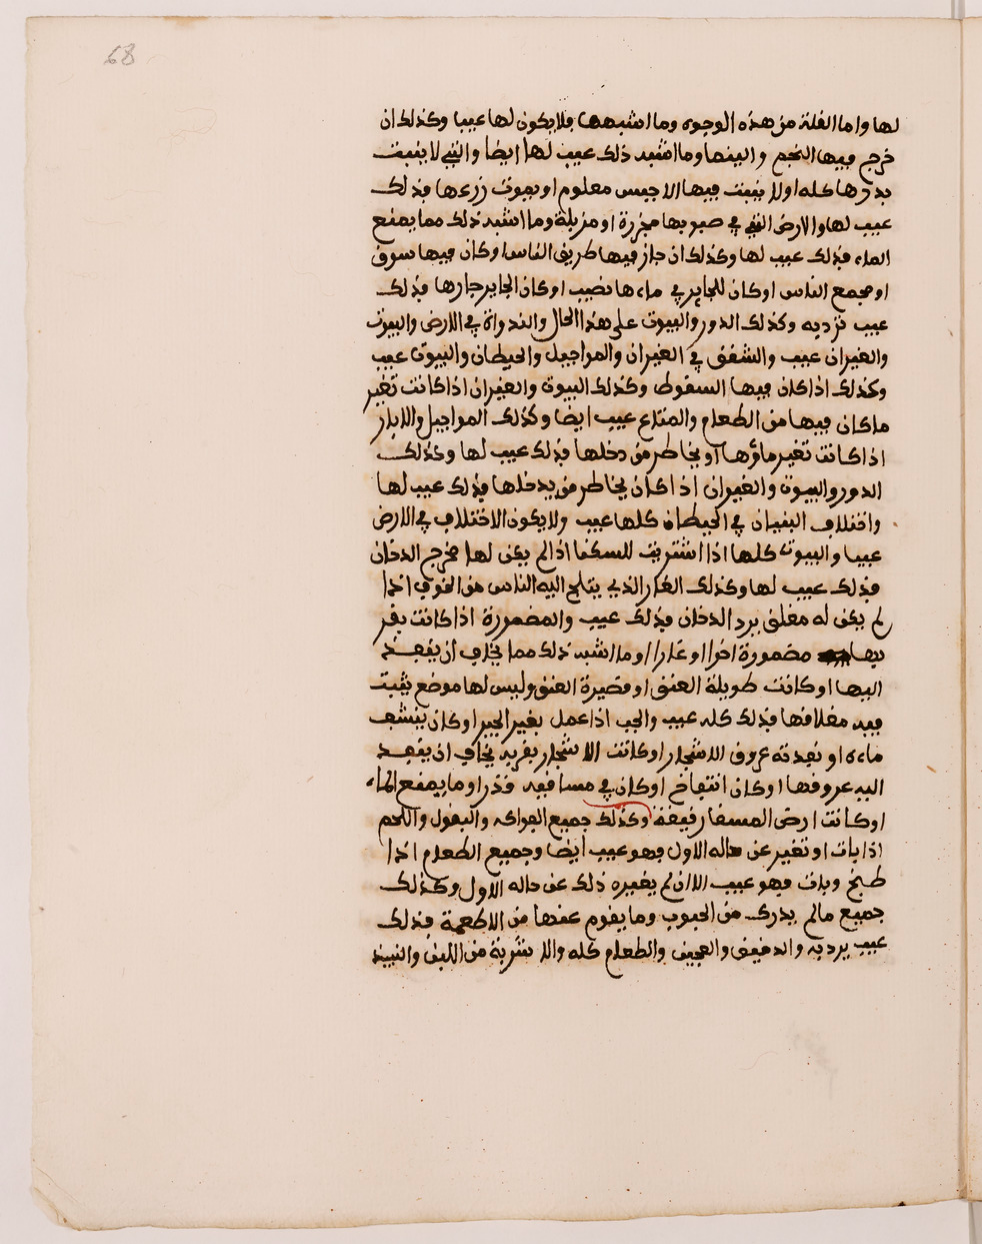 68
لها واما الغلة من هذه الوجوه وما اشبهها فلا يكون لها عيبا وكذلك ان
خرج فيها النجم والينما وما اشبه ذلك عيب لها ايضا والتي لا ينبت
بذرها كله اولا ينبت فيها الا جنس معلوم او يموت زرعها فذلك
عيب لها والارض التي في صبوبها مجزرة او مزبلة وما اشبه ذلك مما يمنع
الماء فذلك عيب لها وكذلك ان جاز فيها طريق الناس او كان فيها سوق
او مجمع الناس او كان للجاير في ماءها نصيب او كان الجاير جارها فذلك
عيب ترد به وكذلك الدور والبيوت على هذا الحال والندواة في الارض والبيوت
والغيران عيب والشقق في الغيران والمواجيل والحيطان والبيوت عيب
وكذلك اذا كان فيها السقوط وكذلك البيوت والغيران اذا كانت تغير
ما كان فيها من الطعام والمتاع عيب ايضا وكذلك المواجيل والابار
اذا كانت تغير ماؤها او يخاطر من دخلها فذلك عيب لها وكذلك
الدور والبيوت والغيران اذا كان يخاطر من يدخلها فذلك عيب لها
واختلاف البنيان في الحيطان كلها عيب ولا يكون الاختلاف في الارض
عيبا والبيوت كلها اذا اشتريت للسكنا اذا لم يكن لها مخرج الدخان
فذلك عيب لها وكذلك الغار الذي يلتج اليه الناس من الخوف اذا
لم يكن له مغلق يرد الدخان فذلك عيب والمضمورة اذا كانت بقر
بها مضمورة اخرا او غارا او ما اشبه ذلك مما يخاف ان ينفـذ
اليها او كانت طويلة العنق او قصيرة العنق وليس لها موضع يثبت
فيه مغلاقها فذلك كله عيب والجب اذا عمل بغير الجير او كان ينشف
ماءه او نفذته عروق الاشجار او كانت الاشجار بقربه يخاف ان ينفـذ
اليه عروقها او كان انتفاخ او كان في مساقيه قذر او ما يمنع الماء
او كانت ارض المسقا رقيقة وكذلك جميع الفواكه والبقول واللحم
اذا بات او تغير عن حاله الاول فهو عيب ايضا وجميع الطعام اذا
طبخ وبات فهو عيب الا ان لم يغيره ذلك عن حاله الاول وكذلك
جميع مالم يدرك من الحبوب وما يقوم عنها من الاطعمة فذلك
عيب يرد به والدقيق والعجين والطعام كله والاشربة من اللبن والنبيذ